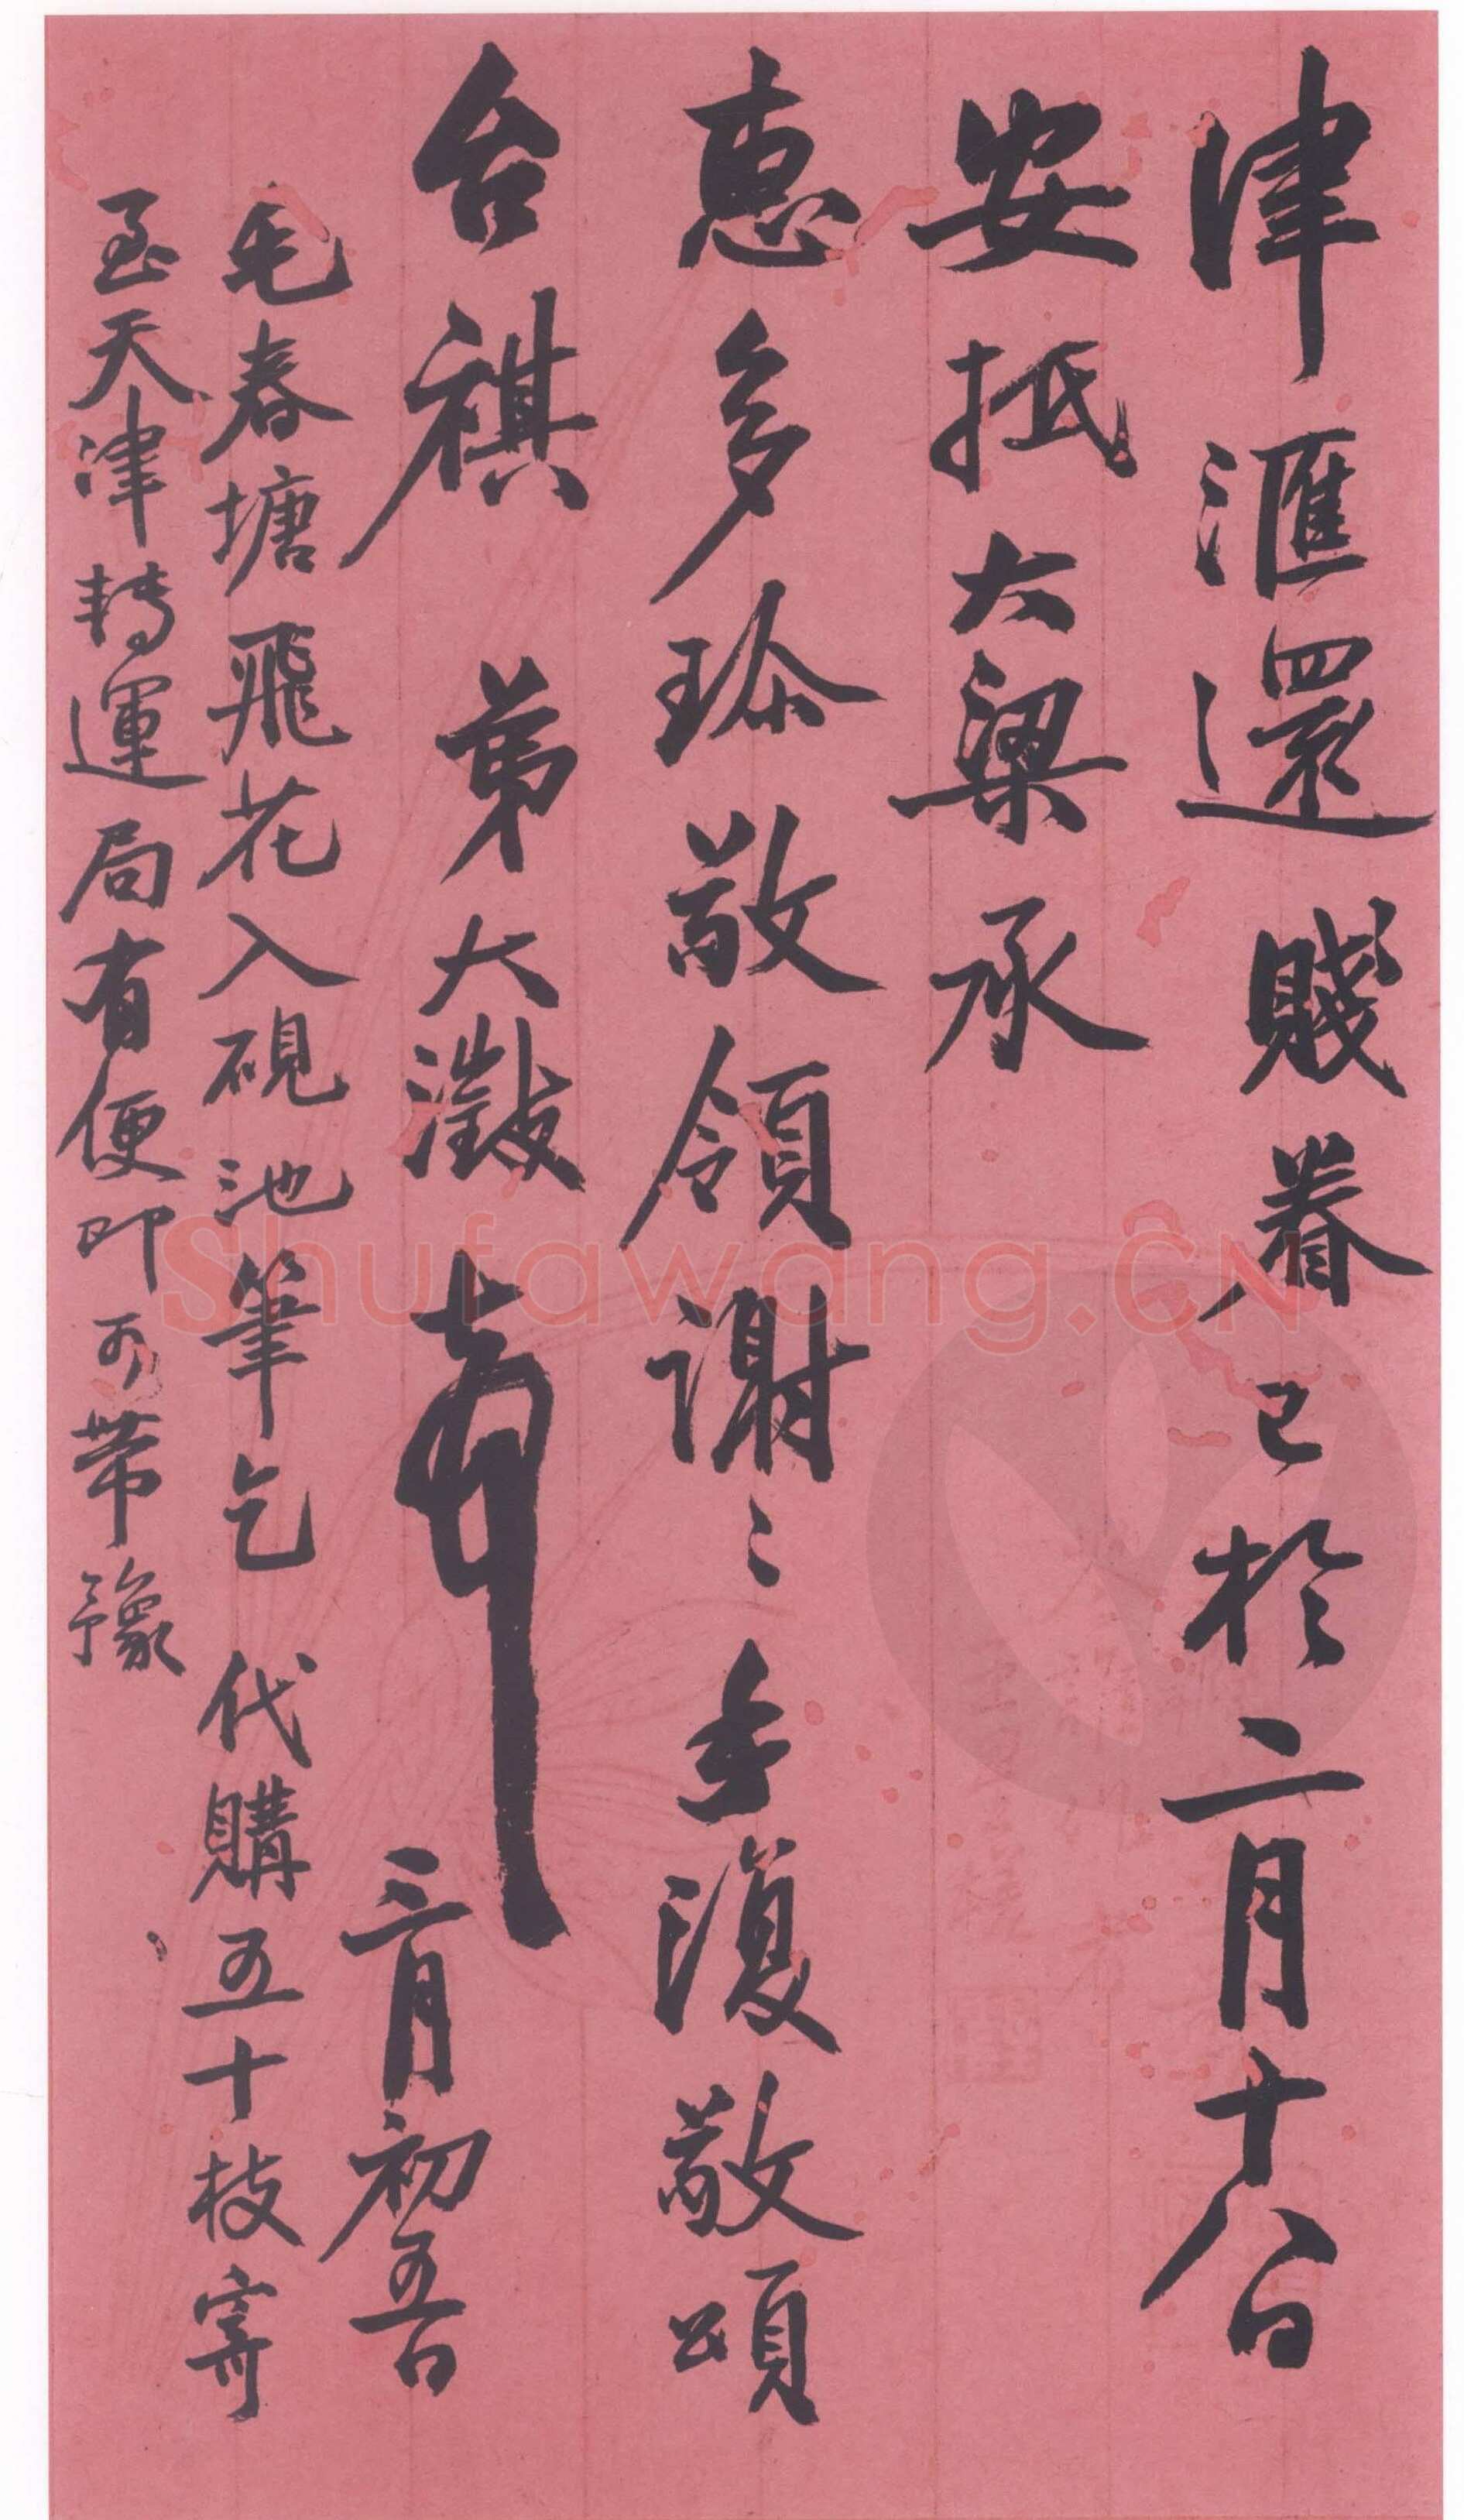 津滙還賤眷已於二月十八日
安抵大梁承
惠多珎敬領謝〻手復敬頌
台祺 弟大澂頓首 三月初五日
毛春塘飛花入硯池筆乞 代購五十枝寄
至天津轉運局有便即可帶豫
Shufawang.CN